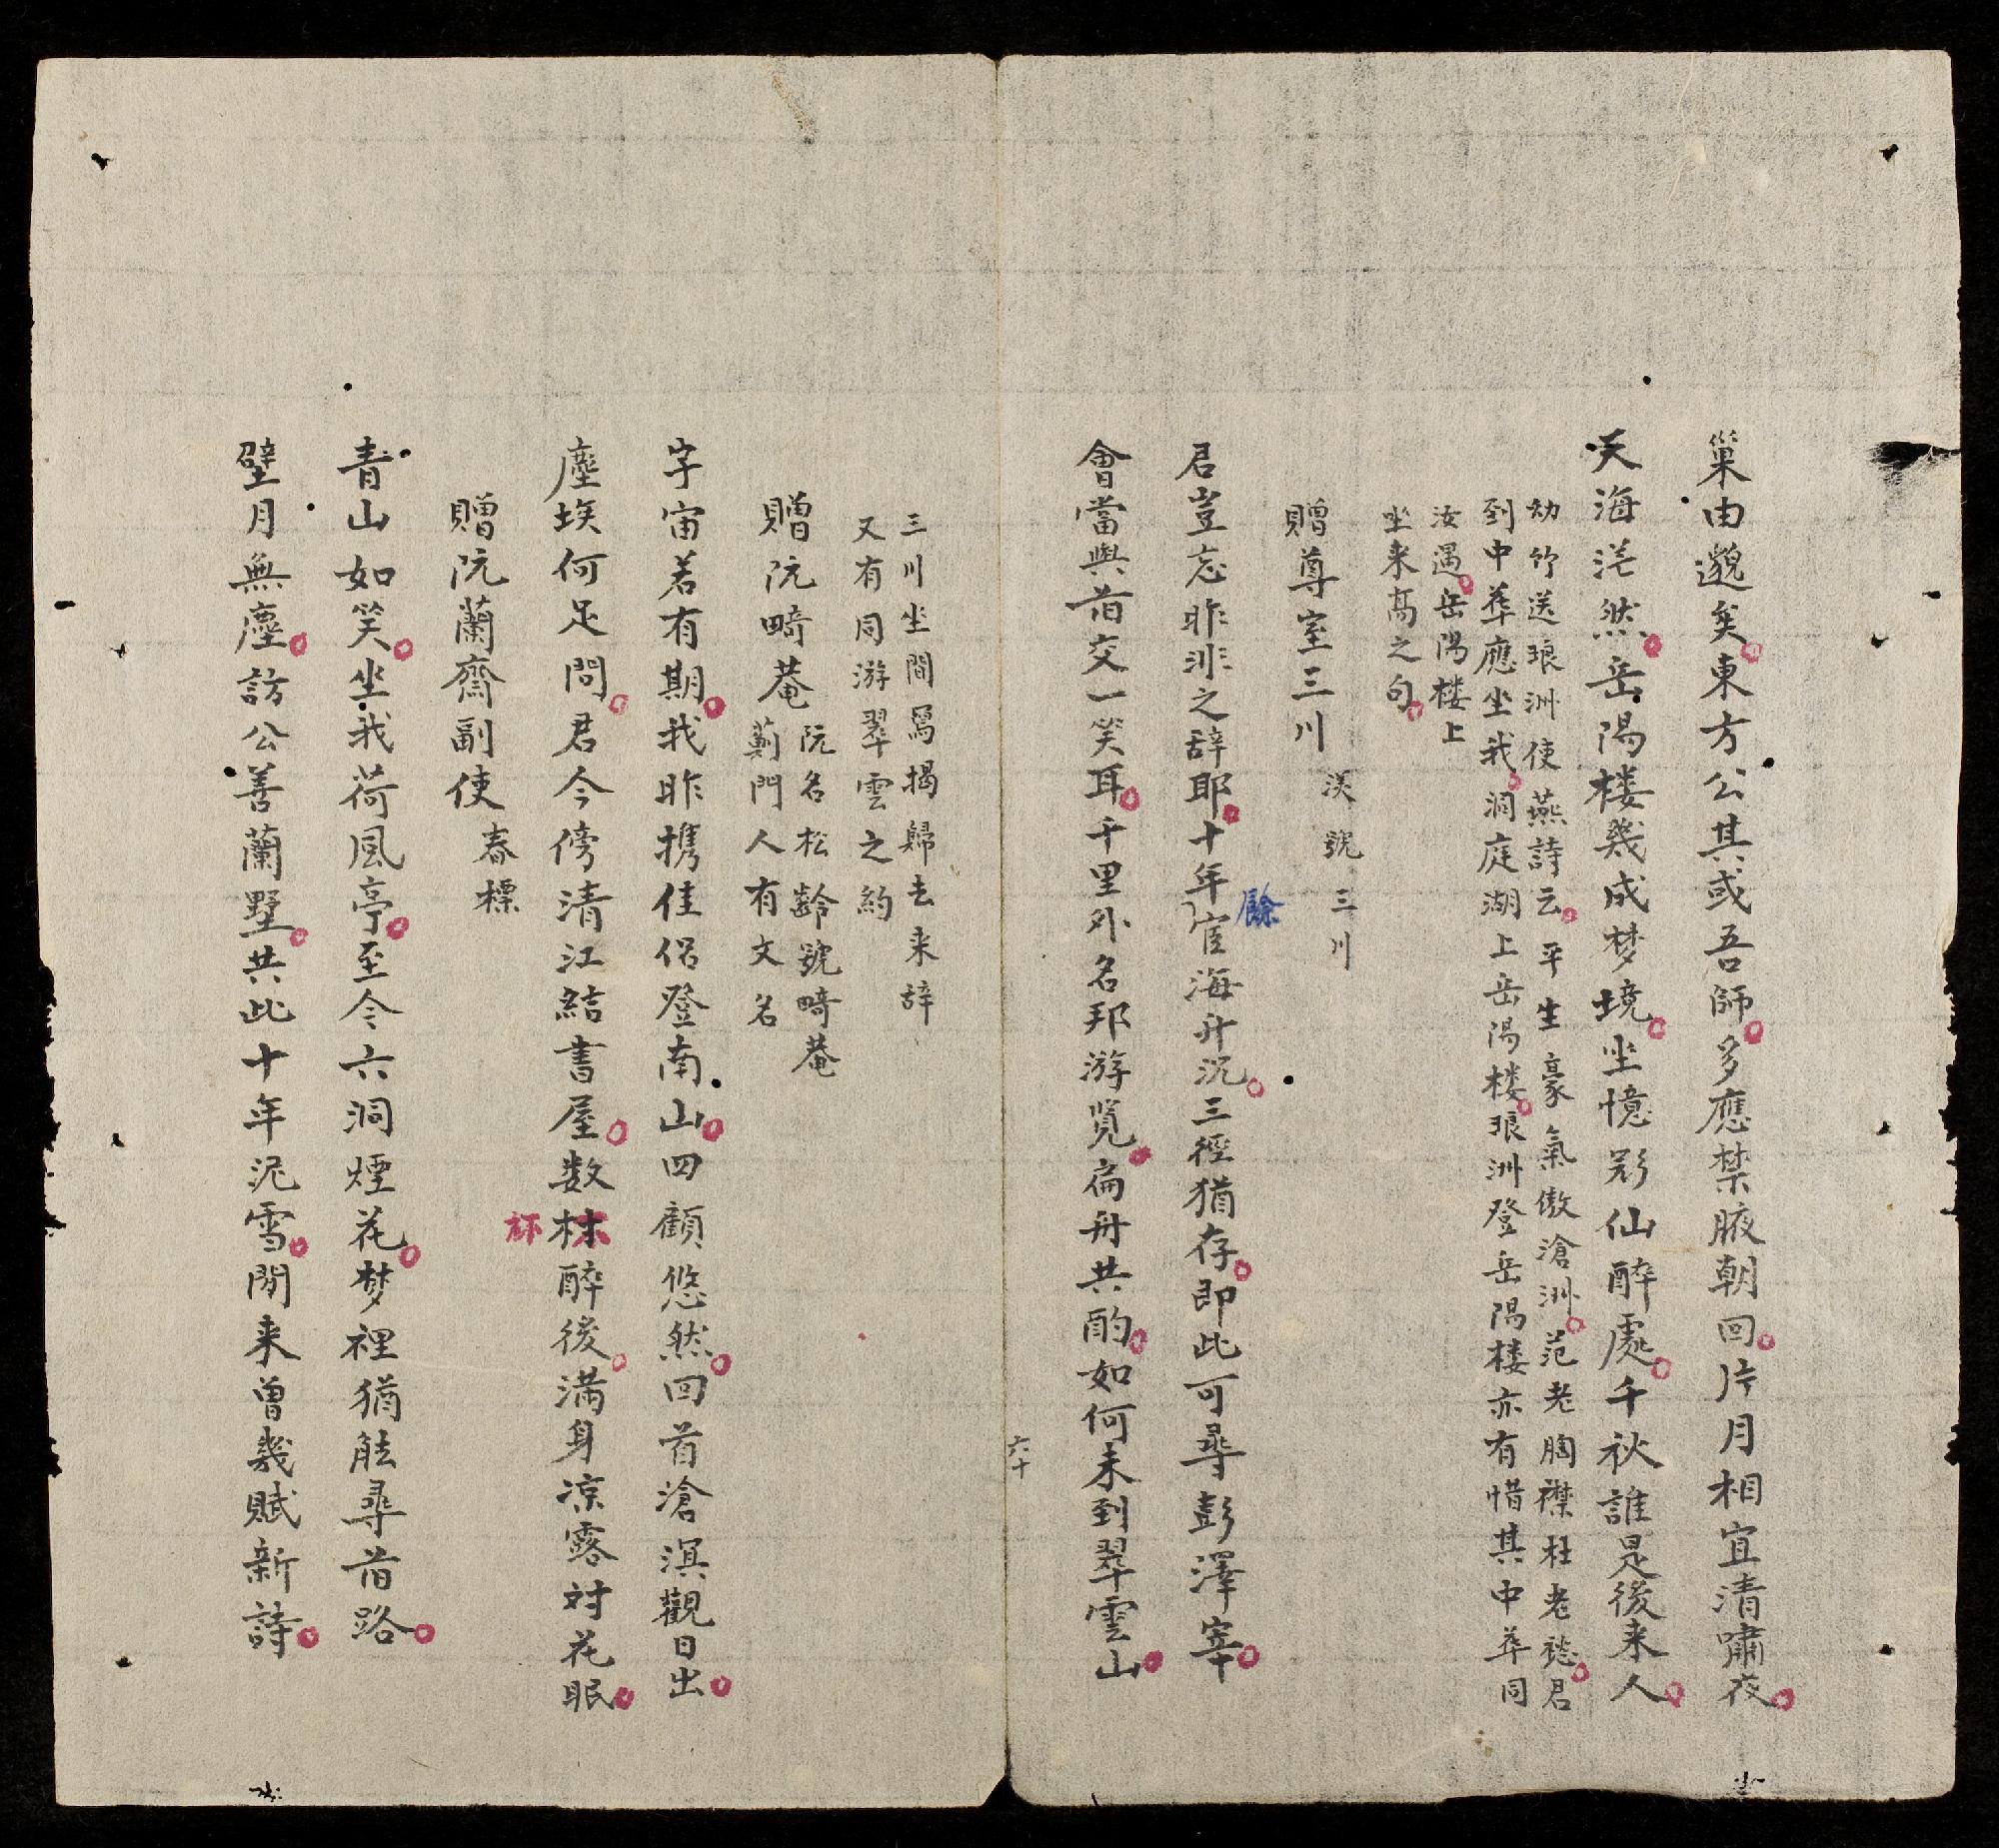 巢由邈矣東方公其或吾師多應禁腋朝回片月相宜清嘯夜
天海茫然岳陽楼幾成梦境坐憶彩仙醉處千秋誰是後来人
幼竹送琅洲使燕詩云平生豪氣傲滄洲范老胸襟杜老愁君
到中華應坐我洞庭湖上岳陽楼琅洲登岳陽楼亦有惜其中華同
汝遇岳陽楼上
坐来高之句
贈尊室三川
渼號三川
君豈忘昨非之辞耶十年宦海升沉三徑猶存即此可尋彭澤宰
餘
會當與昔交一笑耳千里外名邦游覧扁舟共酌如何未到翠雲山
六十
三川坐間寫揭歸去来辞
又有同游翠雲之約
贈阮畸菴
阮名松齡號畸菴
蘮門人有文名
字宙若有期我昨攜佳侶登南山四顧悠然回首滄溟觀日出
塵埃何足問君今傍清江結書屋数林醉後満身凉露対花眠
杯
贈阮蘭齋副使
春標
青山如笑坐我荷風亭至今六洞煙花梦裡猶能尋昔路
壁月無塵訪公善蘭墅共此十年泥雪閒来曽幾賦新詩